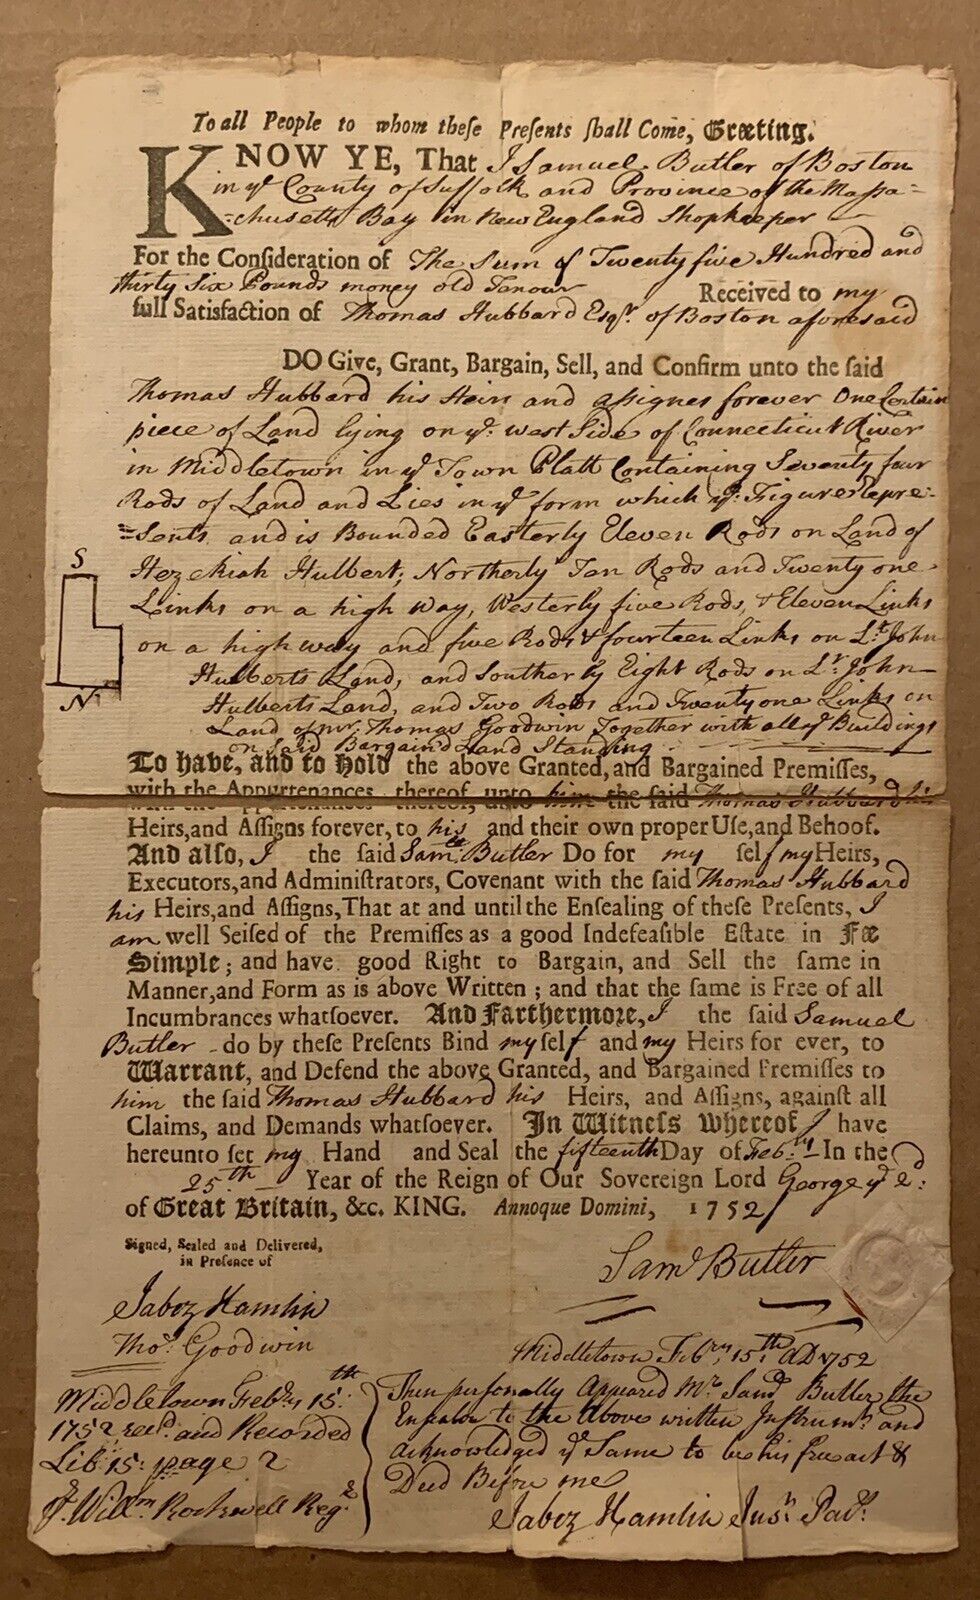 To all People to whom these Presents shall Come, Greeting.
KNOW YE, That I Samuel Butler of Boston
in ye County of Suffolk and Province of the Massa=
=chusetts Bay in New England Shopkeeper
For the Consideration of The Sum of Twenty five Hundred and
thirty Six Pounds money old Tenour Received to my
full Satisfaction of Thomas Hubbard Esqr. of Boston aforesaid
DO Give, Grant, Bargain, Sell, and Confirm unto the said
Thomas Hubbard his Heirs and assignes forever One Certain
piece of Land lying on ye. west Side of Connecticut River
in Middletown in ye Town Platt Containing Seventy four
Rods of Land and Lies in ye form which ye: Figure Repre=
=sents and is Bounded Easterly Eleven Rods on Land of
Hezekiah Hulbert; Northerly Ten Rods and Twenty one
Links on a high way, Westerly five Rods, & Eleven Links
on a high way and five Rods & fourteen Links on Lt. John
Hulberts Land, and Southerly Eight Rods on Lt. John
Hulberts Land, and Two Rods and Twenty one Links on
Land of mr. Thomas Goodwin Together with all ye Buildings
on Said Bargain'd Land Standing
S
N
To have, and to hold the above Granted, and Bargained Premisses,
with the Appurtenances thereof, unto him the said Thomas Hubbard his
Heirs, and Assigns forever, to his and their own proper Use, and Behoof.
And also, I the said Samll. Butler Do for my self my Heirs,
Executors, and Administrators, Covenant with the said Thomas Hubbard
his Heirs, and Assigns, That at and until the Ensealing of these Presents, I
am well Seised of the Premisses as a good Indefeasible Estate in Fee
Simple; and have good Right to Bargain, and Sell the same in
Manner, and Form as is above Written; and that the same is Free of all
Incumbrances whatsoever. And Farthermore, I the said Samuel
Butler do by these Presents Bind my self and my Heirs for ever, to
Warrant, and Defend the above Granted, and Bargained Premisses to
him the said Thomas Hubbard his Heirs, and Assigns, against all
Claims, and Demands whatsoever. In Witness whereof I have
hereunto set my Hand and Seal the fifteenth Day of Febry In the
25th Year of the Reign of Our Sovereign Lord George ye 2d:
of Great Britain, &c. KING. Annoque Domini, 1752
Signed, Sealed and Delivered,
in Presence of
Saml Butler
Jabez Hamlin
Thos. Goodwin
Middletown Febry 15th AD 1752
Then personally Appeared Mr. Saml Butler the
Ensealer to the Above written Instrumt. and
acknowledged ye Same to be his free act &
Deed Before me
Jabez Hamlin Just Pacs.
Middletown Febry 15th
1752 recd. and Recorded
Lib: 15: page 2
pr. Willm Rockwell Regr